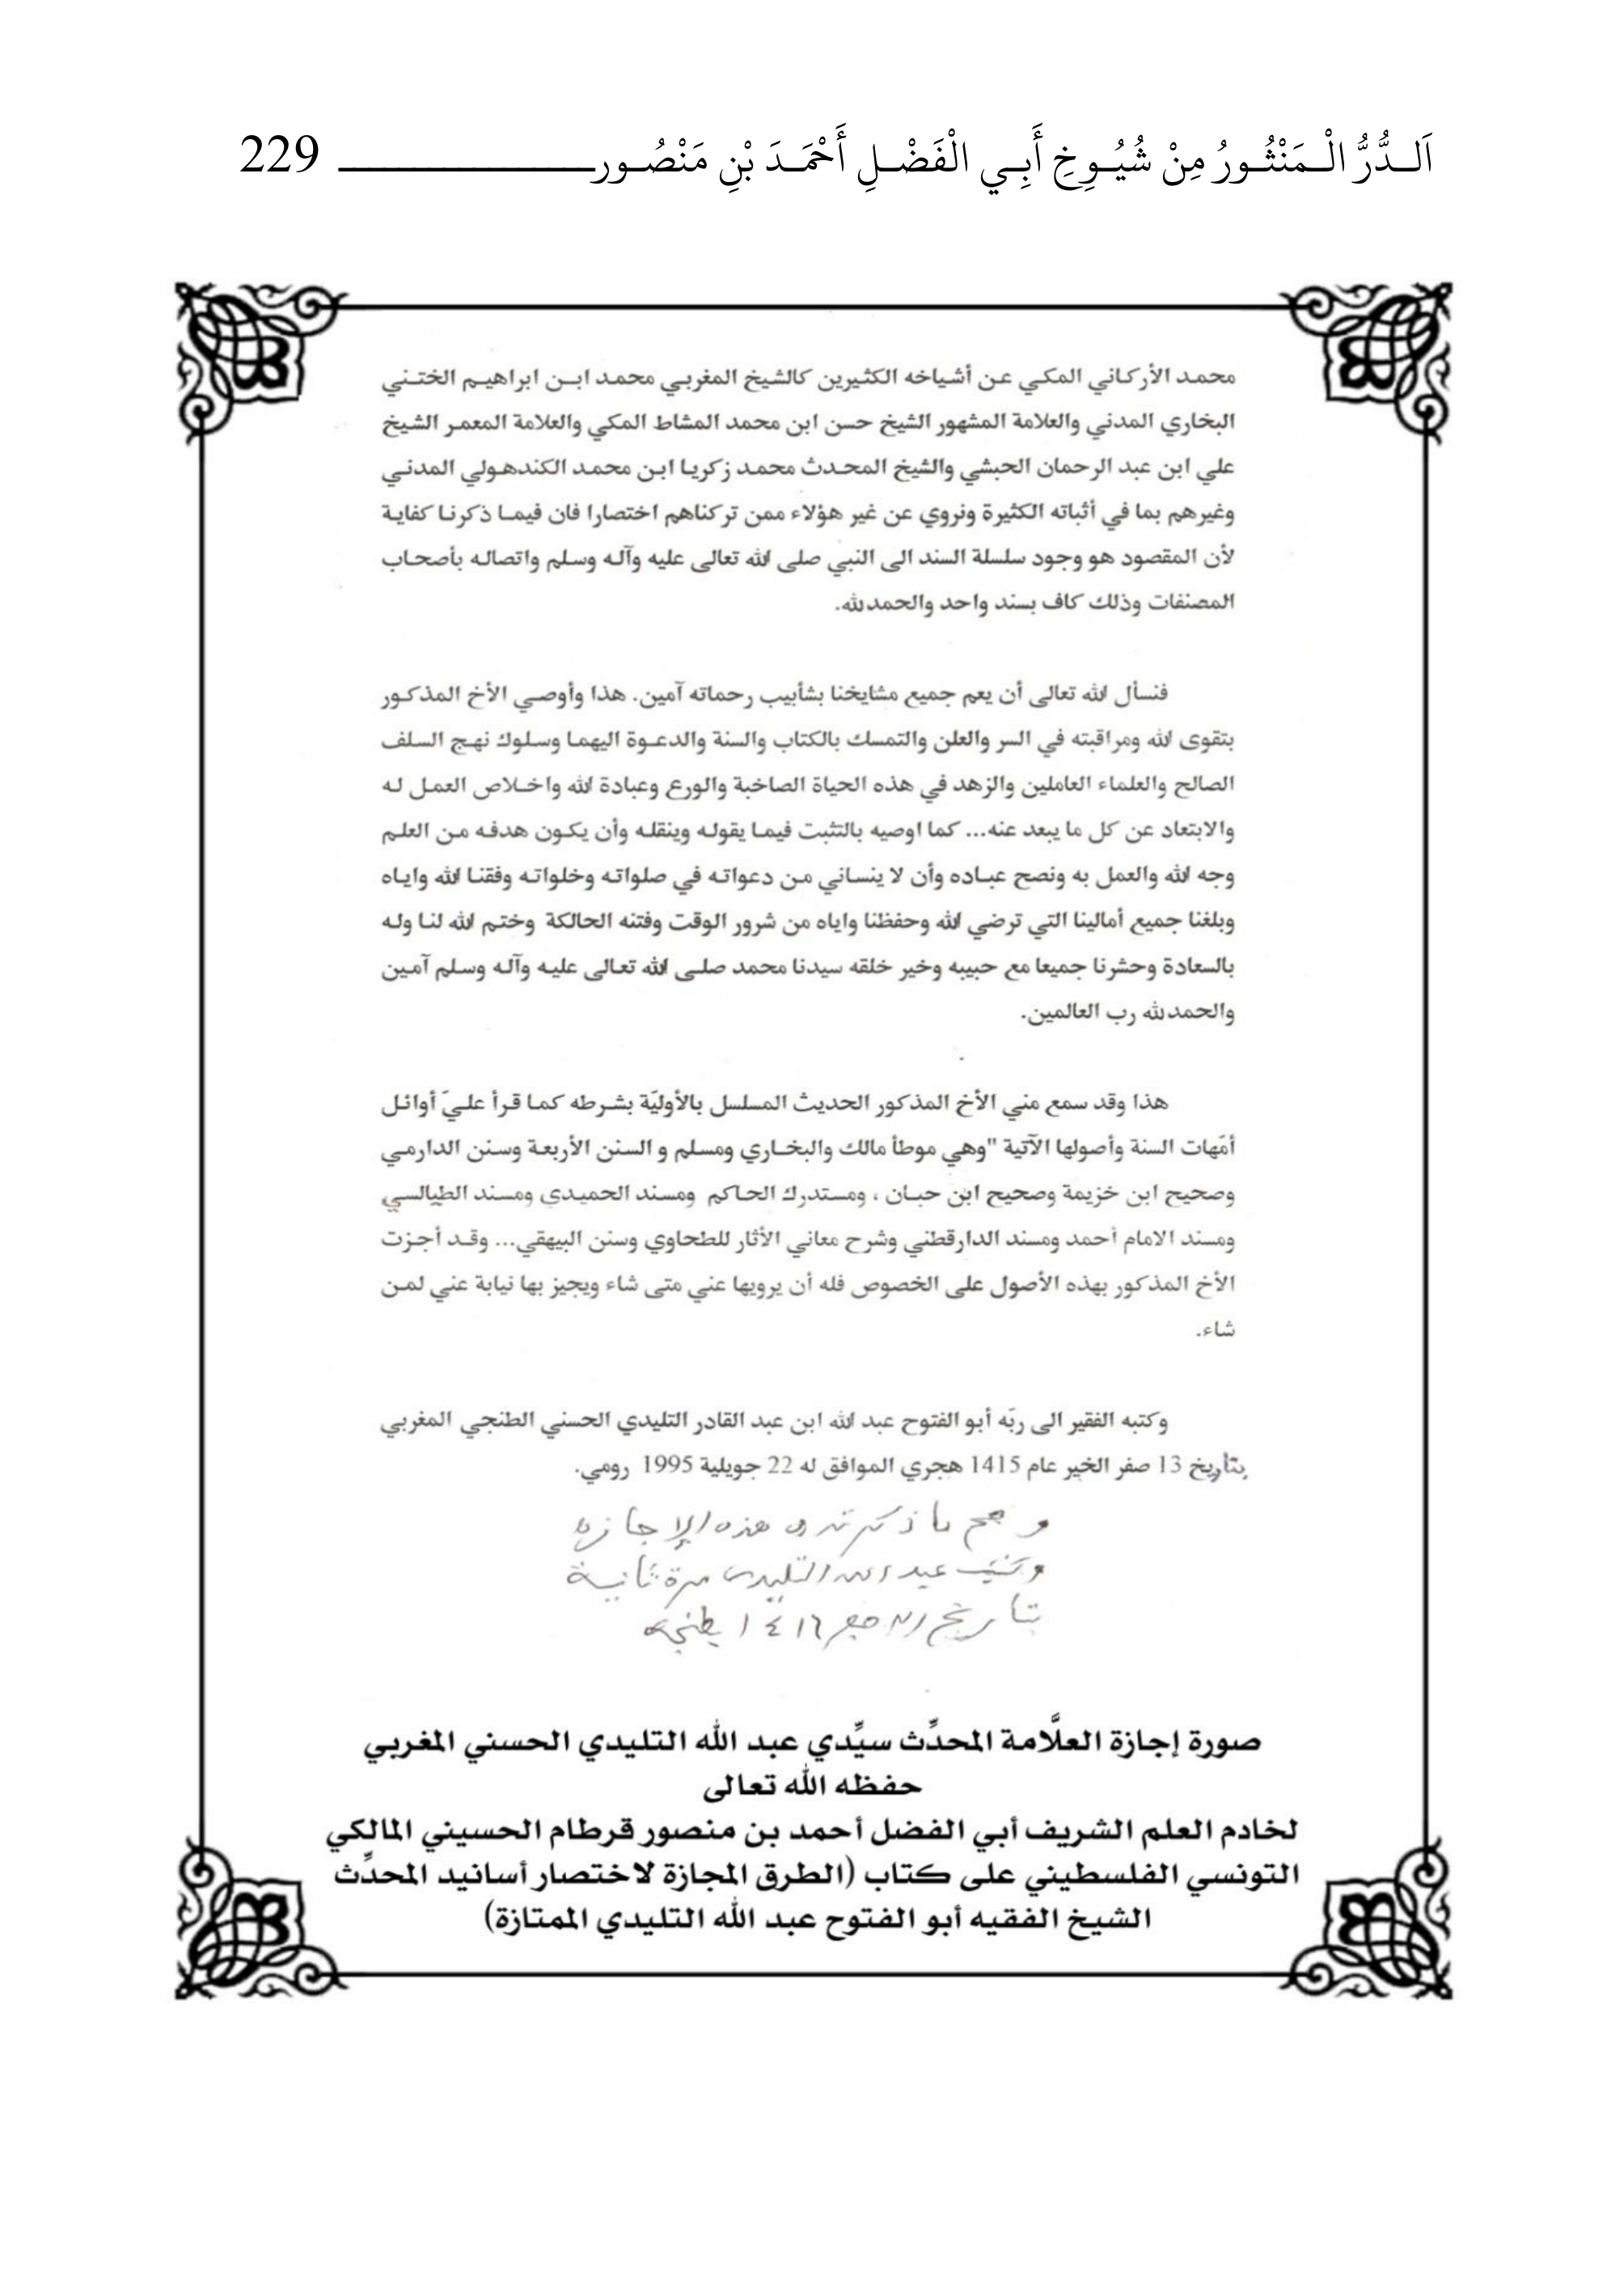 اَلـدُّرُّ الْـمَنْثُـورُ مِنْ شُيُـوخِ أَبِـي الْفَضْـلِ أَحْمَـدَ بْنِ مَنْصُـور 229
محمد الأركاني المكي عن أشياخه الكثيرين كالشيخ المغربي محمد ابن ابراهيم الختني
البخاري المدني والعلامة المشهور الشيخ حسن ابن محمد المشاط المكي والعلامة المعمر الشيخ
علي ابن عبد الرحمان الحبشي والشيخ المحدث محمد زكريا ابن محمد الكندهولي المدني
وغيرهم بما في أثباته الكثيرة ونروي عن غير هؤلاء ممن تركناهم اختصارا فان فيما ذكرنا كفاية
لأن المقصود هو وجود سلسلة السند الى النبي صلى الله تعالى عليه وآله وسلم واتصاله بأصحاب
المصنفات وذلك كاف بسند واحد والحمد لله.
فنسأل الله تعالى أن يعم جميع مشايخنا بشآبيب رحماته آمين. هذا وأوصي الأخ المذكور
بتقوى الله ومراقبته في السر والعلن والتمسك بالكتاب والسنة والدعوة اليهما وسلوك نهج السلف
الصالح والعلماء العاملين والزهد في هذه الحياة الصاخبة والورع وعبادة الله واخلاص العمل له
والابتعاد عن كل ما يبعد عنه... كما اوصيه بالتثبت فيما يقوله وينقله وأن يكون هدفه من العلم
وجه الله والعمل به ونصح عباده وأن لا ينساني من دعواته في صلواته وخلواته وفقنا الله واياه
وبلغنا جميع أمالينا التي ترضي الله وحفظنا واياه من شرور الوقت وفتنه الحالكة وختم الله لنا وله
بالسعادة وحشرنا جميعا مع حبيبه وخير خلقه سيدنا محمد صلى الله تعالى عليه وآله وسلم آمين
والحمد لله رب العالمين.
هذا وقد سمع مني الأخ المذكور الحديث المسلسل بالأوليّة بشرطه كما قرأ عليّ أوائل
أمّهات السنة وأصولها الآتية "وهي موطأ مالك والبخاري ومسلم و السنن الأربعة وسنن الدارمي
وصحيح ابن خزيمة وصحيح ابن حبان ، ومستدرك الحاكم ومسند الحميدي ومسند الطيالسي
ومسند الامام أحمد ومسند الدارقطني وشرح معاني الأثار للطحاوي وسنن البيهقي... وقد أجزت
الأخ المذكور بهذه الأصول على الخصوص فله أن يرويها عني متى شاء ويجيز بها نيابة عني لمن
شاء.
وكتبه الفقير الى ربّه أبو الفتوح عبد الله ابن عبد القادر التليدي الحسني الطنجي المغربي
بتأريخ 13 صفر الخير عام 1415 هجري الموافق له 22 جويلية 1995 رومي.
وصح ما ذكرته في هذه الإجازة
وكتب عبد الله التليدي مرة ثانية
بتاريخ صفر ١٤١٦ بطنجة
صورة إجازة العلَّامة المحدِّث سيِّدي عبد الله التليدي الحسني المغربي
حفظه الله تعالى
لخادم العلم الشريف أبي الفضل أحمد بن منصور قرطام الحسيني المالكي
التونسي الفلسطيني على كتاب (الطرق المجازة لاختصار أسانيد المحدِّث
الشيخ الفقيه أبو الفتوح عبد الله التليدي الممتازة)